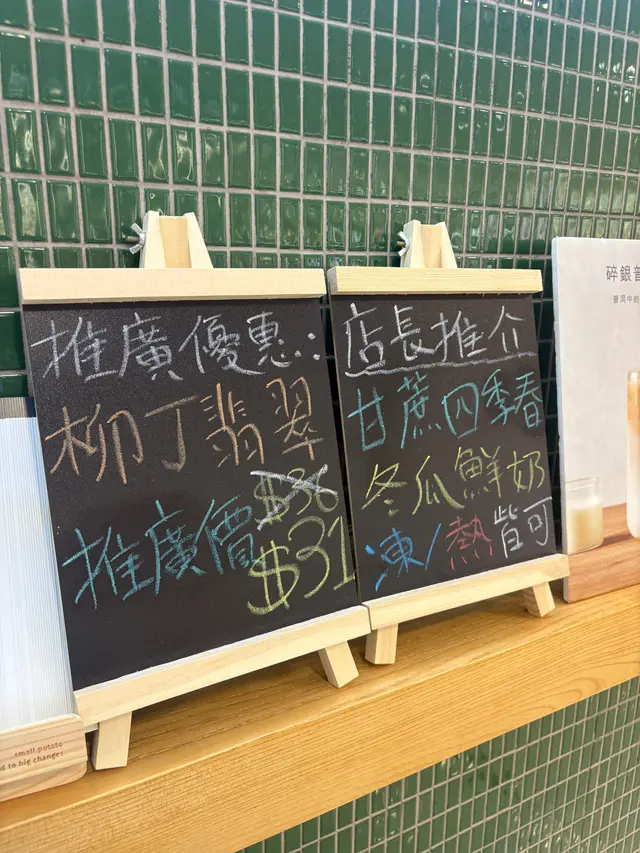 推廣優惠:
柳丁翡翠
$36
推廣價$31
店長推介
甘蔗四季春
冬瓜鮮奶
凍/熱皆可
碎銀普
普洱中的
small potato
d to big changes